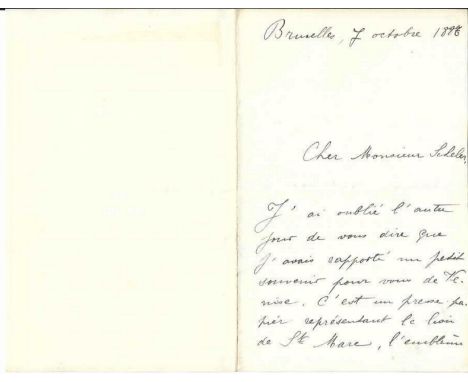 Bruxelles, 7 octobre
Cher Monsieur Scheler,
J'ai oublié l'autre
jour de vous dire que
j'avais rapporté un petit
souvenir pour vous de Ve-
nise. C'est un presse pa-
pier représentant le lion
de St Marc, l'emblème